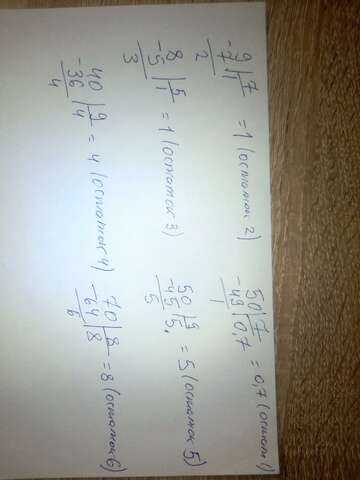 9 | 7
-7 | 1 = 1 (остаток 2)
2
8 | 5
-5 | 1 = 1 (остаток 3)
3
40 | 9
-36 | 4 = 4 (остаток 4)
4
50 | 7
-49 | 0,7 = 0,7 (остат 1)
1
50 | 9
-45 | 5, = 5 (остаток 5)
5
70 | 8
-64 | 8 = 8 (остаток 6)
6